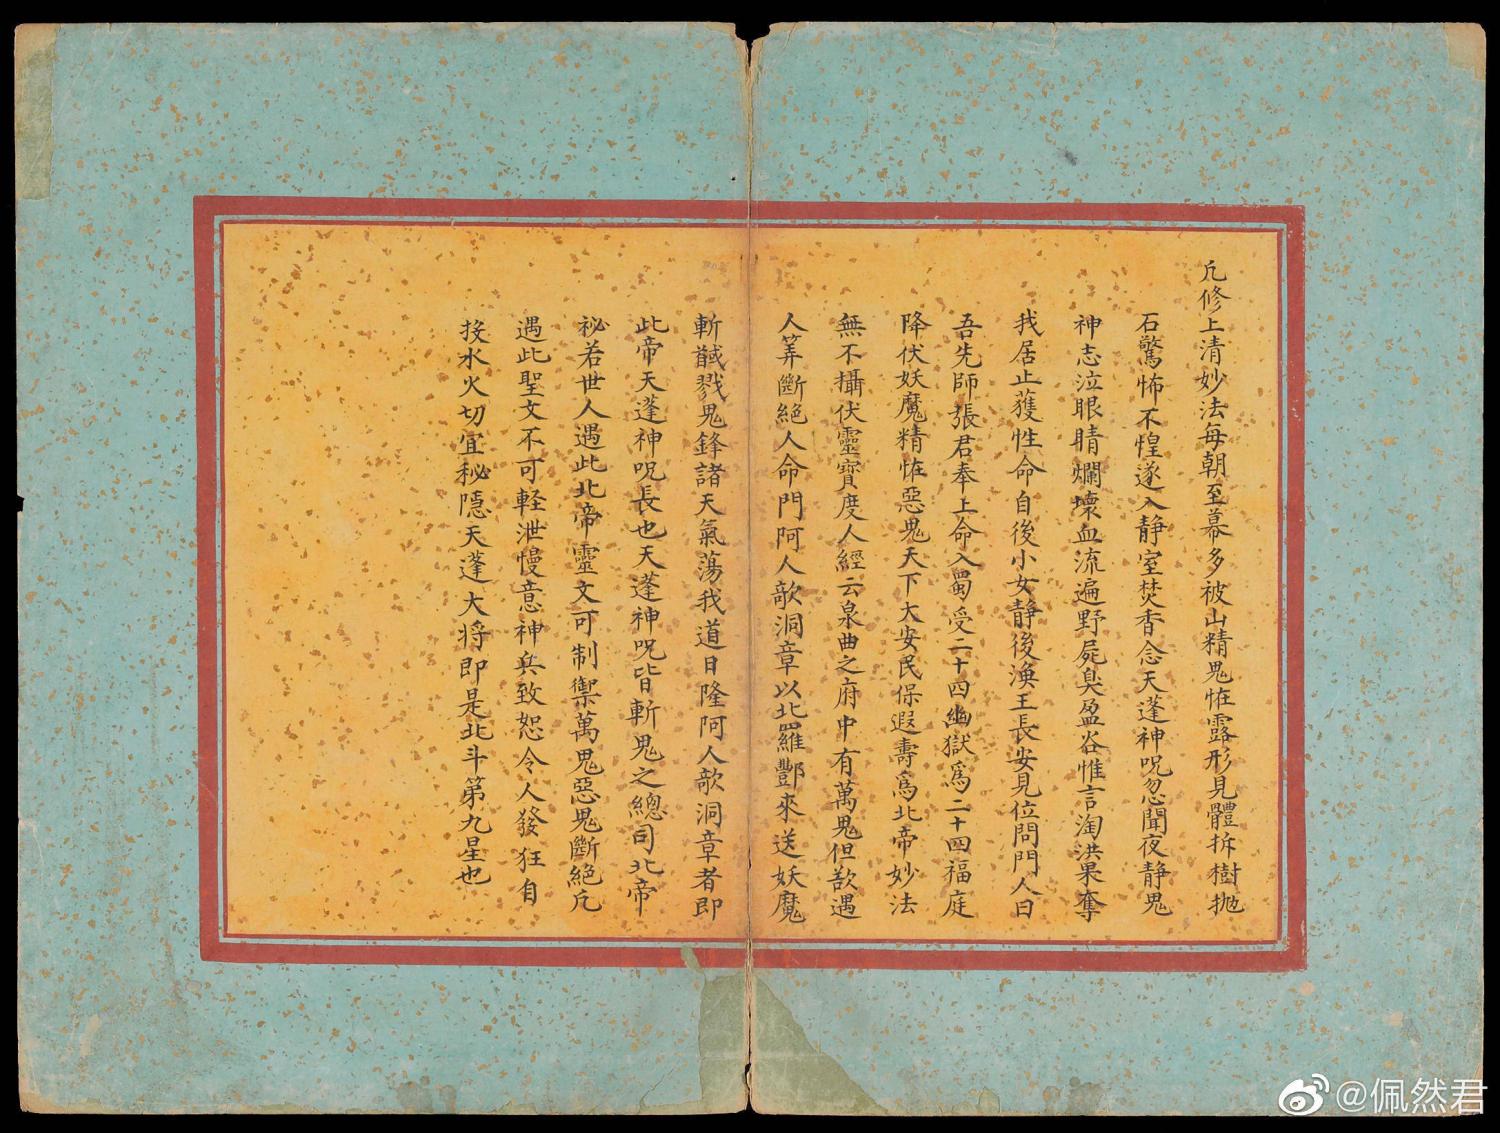 凢修上清妙法每朝至暮多被山精鬼恠露形見體拆樹拋
石驚怖不惶遂入静室焚香念天蓬神呪忽聞夜静鬼
神志泣眼睛爛壞血流遍野屍臭盈谷惟言淘洪果奪
我居止獲性命自後小女静後渙王長安見位問門人曰
吾先師張君奉上命入蜀受二十四幽獄爲二十四福庭
降伏妖魔精恠惡鬼天下大安民保遐壽爲北帝妙法
無不攝伏靈寶度人經云泉曲之府中有萬鬼但欲遏
人筭斷絶人命門阿人歌洞章以北羅酆來送妖魔
斬馘戮鬼鋒諸天氣蕩我道日隆阿人歌洞章者即
此帝天蓬神呪長也天蓬神呪皆斬鬼之總司北帝
祕若世人遇此北帝靈文可制禦萬鬼惡鬼斷絶凢
遇此聖文不可輕泄慢意神兵致恕令人發狂自
投水火切宜秘隱天蓬大将即是北斗第九星也
@佩然君